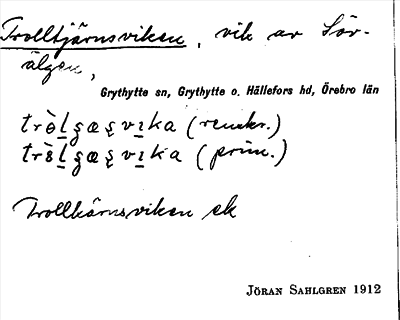 Trolltjärnsviken, vik av Sör-
älgen,
Grythytte sn, Grythytte o. Hällefors hd, Örebro län
trö̀l̲ʂæʂvi̲ka (renskr.)
trö̀l̲ʂæʂvi̲ka (prim.)
Trollkärnsviken ek
JÖRAN SAHLGREN 1912